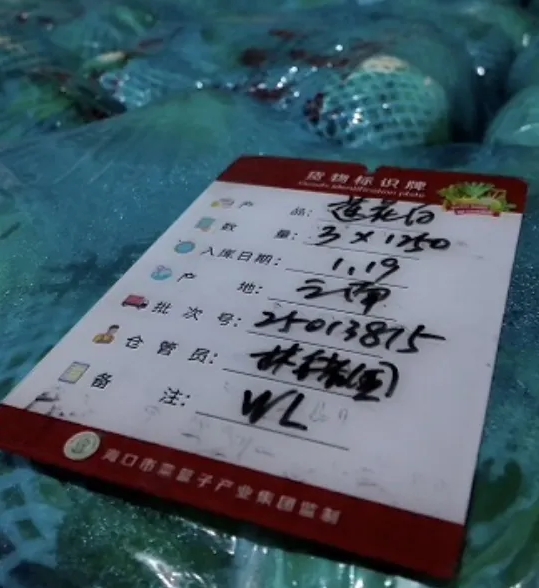 货物标识牌
Goods identification plate
产 品: 莲花白
数 量: 3×1250
入库日期: 1.19
产 地: 云南
批 次 号: 25013815
仓 管 员:
备 注: WL
海口市菜篮子产业集团监制